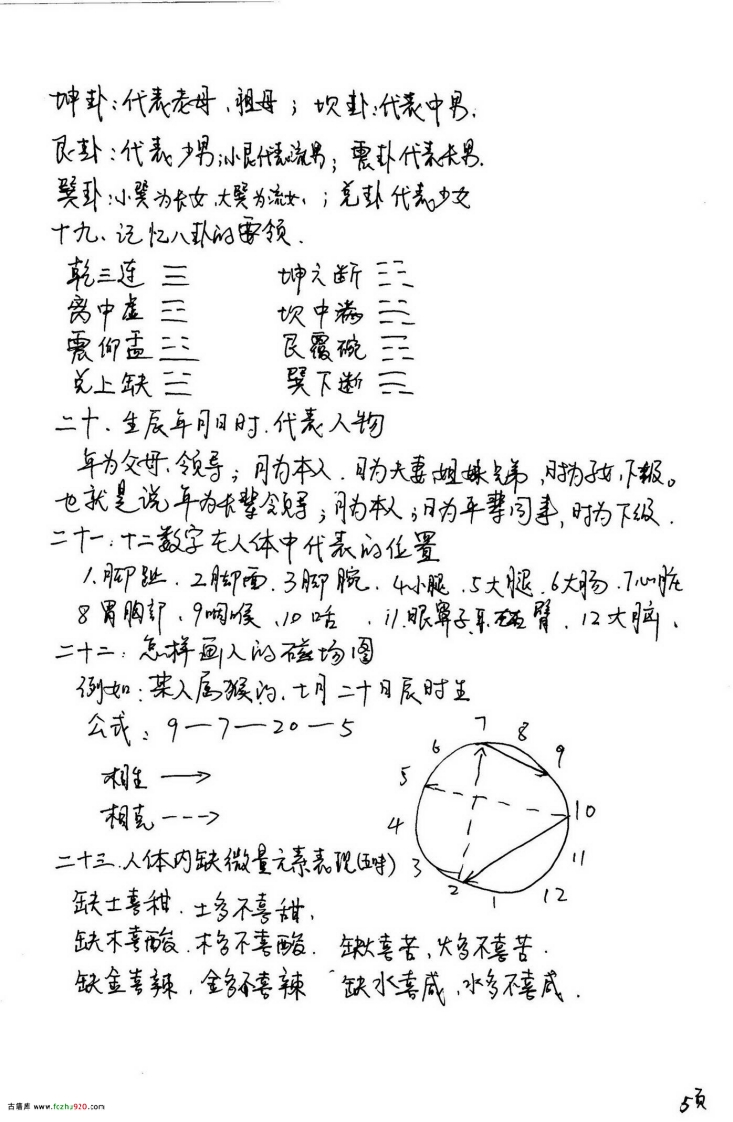 坤卦:代表老母、祖母;坎卦:代表中男.
艮卦:代表少男;小艮代表流男;震卦代表长男.
巽卦:小巽为长女,大巽为流女,;兑卦代表少女
十九、记忆八卦的要领.
乾三连 ☰ 坤六断 ☷
离中虚 ☲ 坎中满 ☵
震仰盂 ☳ 艮覆碗 ☶
兑上缺 ☱ 巽下断 ☴
二十、生辰年月日时.代表人物
年为父母、领导;月为本人.日为夫妻姐妹兄弟,时为子女,下级。
也就是说年为长辈领导;月为本人;日为平辈同事,时为下级.
二十一.十二数字在人体中代表的位置
1.脚趾.2脚面.3脚腕.4小腿.5大腿.6大肠.7心脏
8胃胸部.9咽喉.10舌.11.眼鼻子耳臂.12大脑.
二十二:怎样画人的磁场图
例如:某人属猴的,七月二十日辰时生
公式:9—7—20—5
相生 ⟶
相克 ---→
7 8 9 10 11 12 1 2 3 4 5 6
二十三.人体内缺微量元素表现(五味)
缺土喜甜.土多不喜甜,
缺木喜酸.木多不喜酸.缺火喜苦,火多不喜苦.
缺金喜辣,金多不喜辣 缺水喜咸,水多不喜咸.
5页
古籍库 www.fczhu920.com